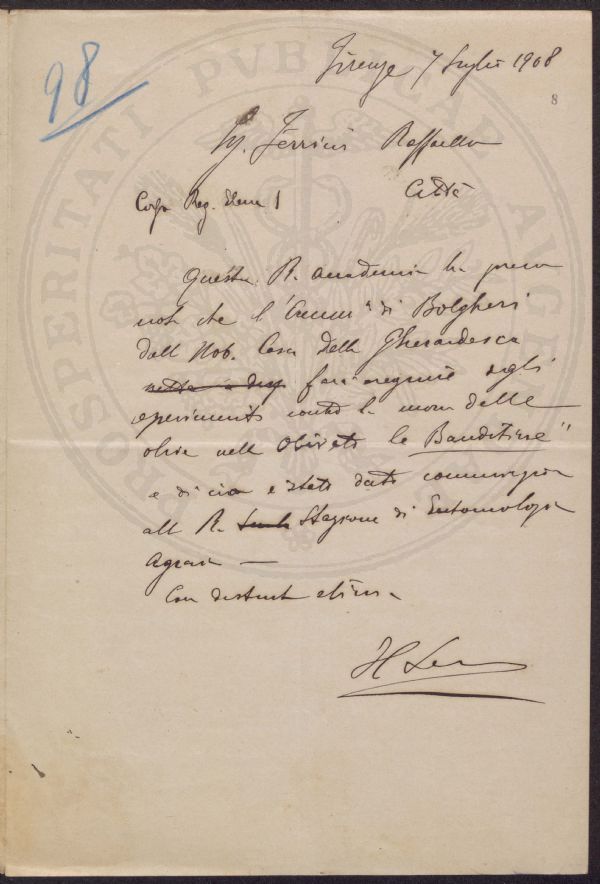 98
Firenze 7 Luglio 1908
8
Sig. Ferrini Raffaello
Corso Reg. Elena 1 Città
Questa R. accademia ha preso
nota che l' di Bolgheri
dell Nob. Casa della Gherardesca
farà eseguire degli
esperimenti contro la mosca delle
olive nell Oliveto le Banditiere"
e di ciò è stata data comunicazione
alla R. Stazione di Entomologia
Agraria —
Con distinta stima
PROSPERITATI PVBLICAE AVGENDAE